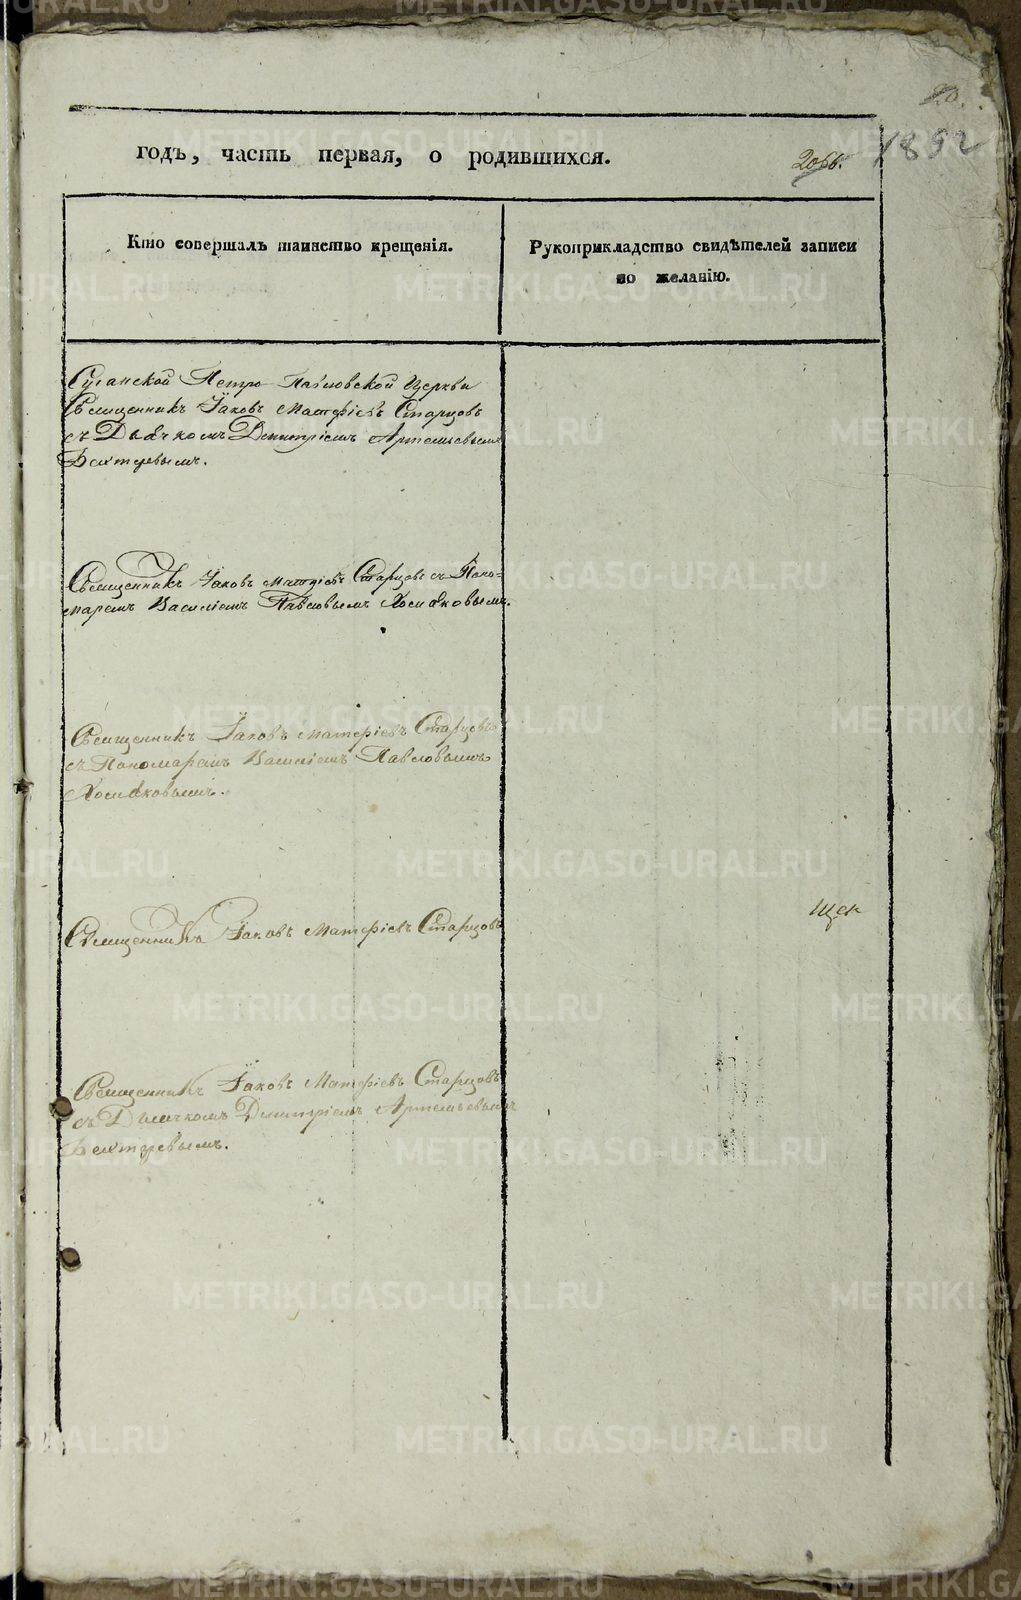 годъ, часть первая, о родившихся.
1892
Кто совершалъ таинство крещенія.
Рукоприкладство свидѣтелей записи
по желанію.
Петро Павловской Церкви
Священникъ Іаковъ Матфіевъ Старцовъ
съ Дьячкомъ Димитріемъ Артемьевымъ
Бехтеревымъ.
Священникъ Іаковъ Матфіевъ Старцовъ съ Поно-
маремъ Василіемъ Павловымъ Хомяковымъ.
Священникъ Іаковъ Матфіевъ Старцовъ
съ Пономаремъ Василіемъ Павловымъ
Хомяковымъ.
Священникъ Іаковъ Матфіевъ Старцовъ
Священникъ Іаковъ Матфіевъ Старцовъ
съ Дьячкомъ Димитріемъ Артемьевымъ
Бехтеревымъ.
METRIKI.GASO-URAL.RU